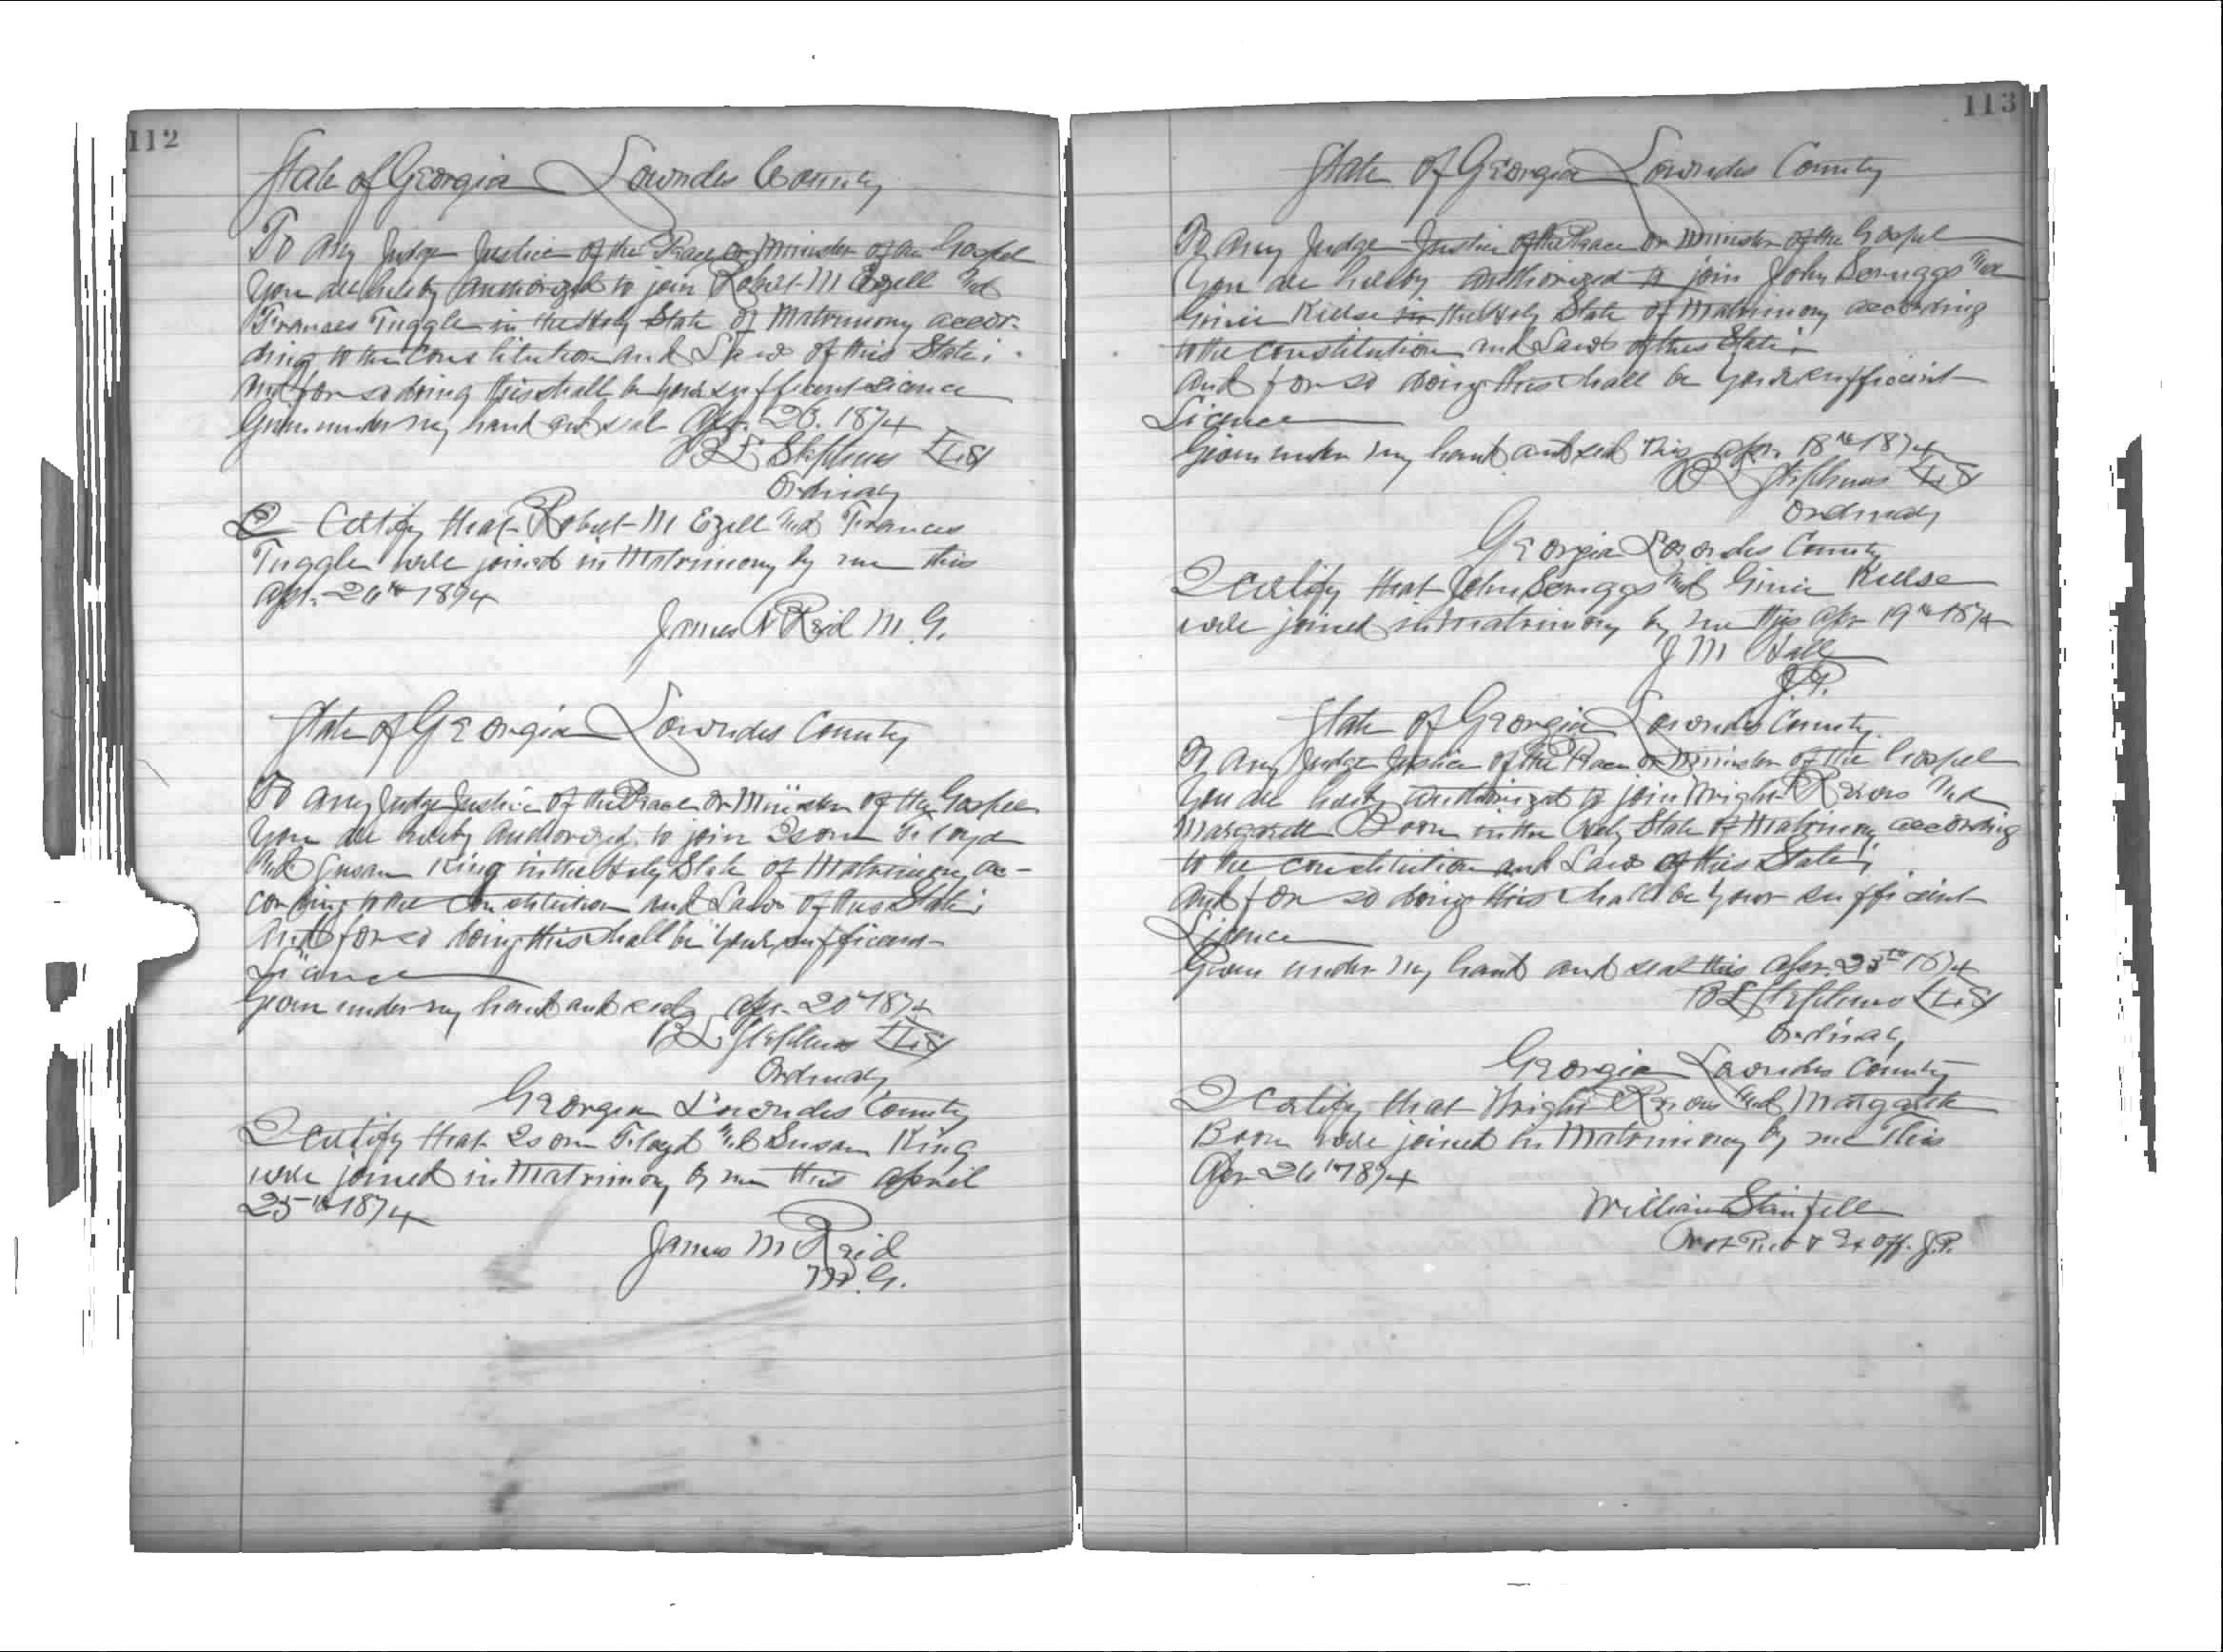 112
State of Georgia Lowndes County
To any Judge Justice of the Peace or Minister of the Gospel
You are hereby authorized to join Robert M Ezell and
Frances Tuggle in the Holy State of Matrimony accor-
ding to the Constitution and Laws of this State;
And for so doing this shall be your sufficient Licence
Given under my hand and seal Apr. 1874
B L Stephens L.S
Ordinary
I Certify that Robert M Ezell and Frances
Tuggle were joined in Matrimony by me this
Apr. 26th 1874
James Reid M.G.
State of Georgia Lowndes County
To any Judge Justice of the Peace or Minister of the Gospel
You are hereby authorized to join Isom Floyd
And Susan King in the Holy State of Matrimony ac-
cording to the Constitution and Laws of this State;
And for so doing this shall be your sufficient
Licence
Given under my hand and seal Apr. 20th 1874
B L Stephens L.S
Ordinary
Georgia Lowndes County
I Certify that Isom Floyd and Susan King
were joined in Matrimony by me this April
25th 1874
James M Reid
M.G.
113
State of Georgia Lowndes County
To any Judge Justice of the Peace or Minister of the Gospel
You are hereby authorized to join John Scruggs and
Ginie in the Holy State of Matrimony according
to the Constitution and Laws of this State;
And for so doing this shall be your sufficient
Licence
Given under my hand and seal this Apr. 18th 1874
B L Stephens L.S
Ordinary
Georgia Lowndes County
I Certify that John Scruggs and Ginie
were joined in Matrimony by me this Apr 19th 1874
J M Hall
J.P.
State of Georgia Lowndes County
To any Judge Justice of the Peace or Minister of the Gospel
You are hereby authorized to join Wright and
Margarett Boon in the Holy State of Matrimony according
to the Constitution and Laws of this State;
And for so doing this shall be your sufficient
Licence
Given under my hand and seal this Apr. 25th 1874
B L Stephens L.S
Ordinary
Georgia Lowndes County
I Certify that Wright and Margarett
Boon were joined in Matrimony by me this
Apr 26th 1874
William Stanfell
Not Pub & Ex Off. J.P.